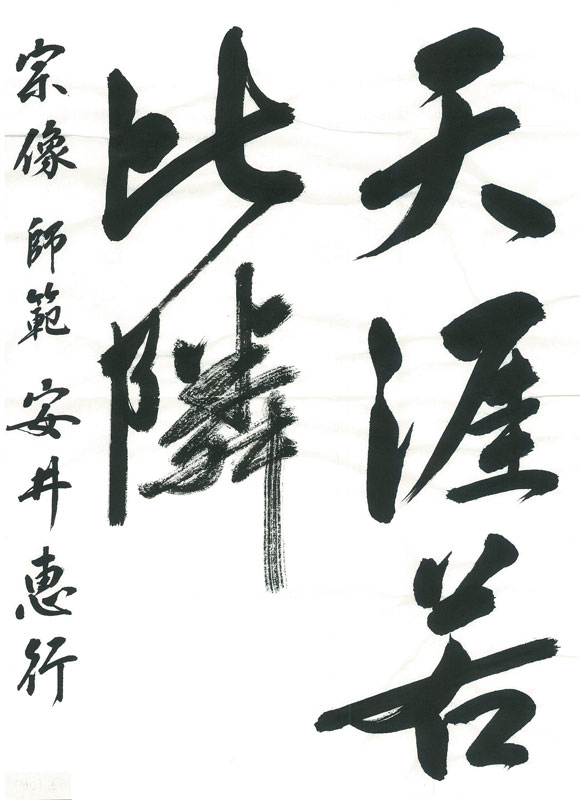 天涯若
比隣
宗像 師範 安井惠行